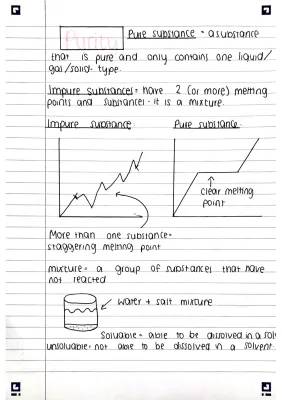 Purity
Pure substance = a substance
that is pure and only contains one liquid/
gas/solid type.
Impure substances = have 2 (or more) melting
points and substances - it is a mixture.
Impure substance Pure substance.
clear melting
point
More than one substance =
staggering melting point
mixture = a group of substances that have
not reacted
water + salt mixture
Soluable = able to be dissolved in a sol
unsoluable = not able to be dissolved in a solvent.